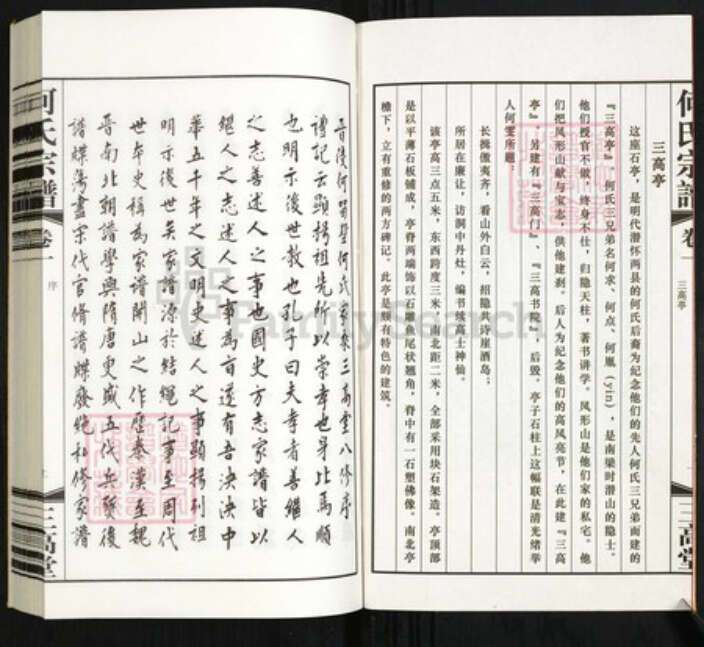 何氏宗譜
卷一
三高亭
三高堂
三高亭
这座石亭，是明代潜怀两县的何氏后裔为纪念他们的先人何氏三兄弟而建的
『三高亭』。何氏三兄弟名何求、何点、何胤(yin)，是南梁时潜山的隐士。
他们授官不做，终身不仕，归隐天柱，著书讲学。凤形山是他们家的私宅。他
们把凤形山献与宝志，供他建刹。后人为纪念他们的高风亮节，在此建『三高
亭』，另建有『三高门』、『三高书院』，后毁。亭子石柱上这幅联是清光绪举
人何雯所题。
长揖傲夷齐，看山外白云，招隐共诗崖酒岛；
所居在廉让，访洞中丹灶，编书续高士神仙。
该亭高三点五米，东西跨度三米，南北距二米，全部采用块石架造。亭顶部
是以平薄石板铺成，亭脊两端饰以石雕鱼尾状翘角，脊中有一石塑佛像。南北亭
檐下，立有重修的两方碑记。此亭是颇有特色的建筑。
晋后何 何氏家乘三高堂八修序
礼记云显扬祖先所以崇孝也身比焉顺
也明示后世教也孔子曰夫孝者善继人
之志善述人之事也国史方志家谱皆以
继人之志述人之事为旨遂有吾泱泱中
华五千年之文明史述人之事显扬列祖
明示后世矣家谱源于结绳记事至周代
世本史称为家谱开山之作历秦汉至魏
晋南北朝谱学兴隋唐更盛五代兵燹后
谱牒荡尽宋代官修谱牒废弛私修家谱
何氏宗譜
卷一
序
三高堂
FamilySearch